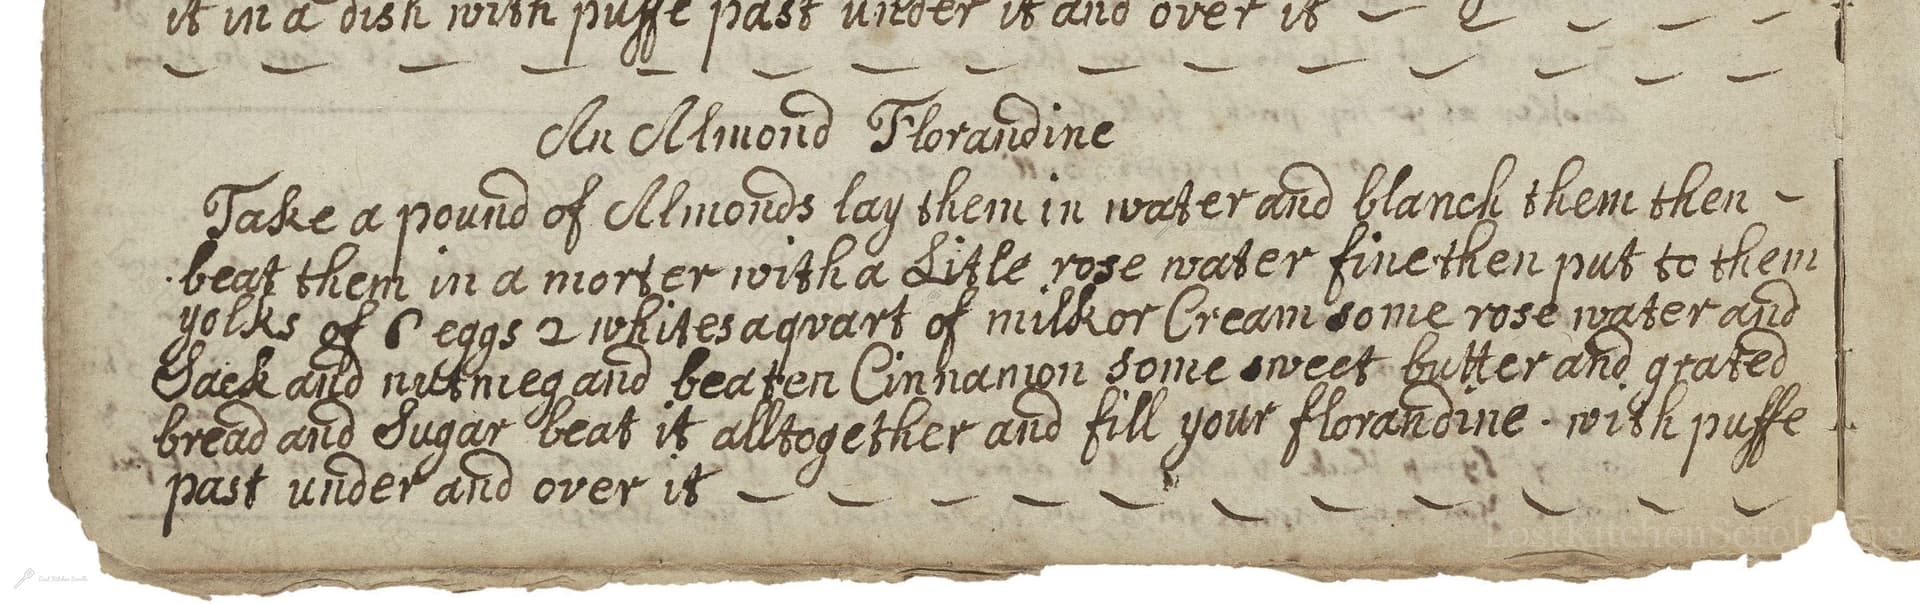 it in a dish with puffe past under it and over it
An Almond Florandine
Take a pound of Almonds lay them in water and blanch them then -
beat them in a morter with a Litle rose water fine then put to them
yolks of 6 eggs 2 whites a qvart of milk or Cream some rose water and
Sack and nutmeg and beaten Cinnamon some sweet butter and grated
bread and Sugar beat it alltogether and fill your florandine . with puffe
past under and over it
LostKitchenScrolls.org
Lost Kitchen Scrolls